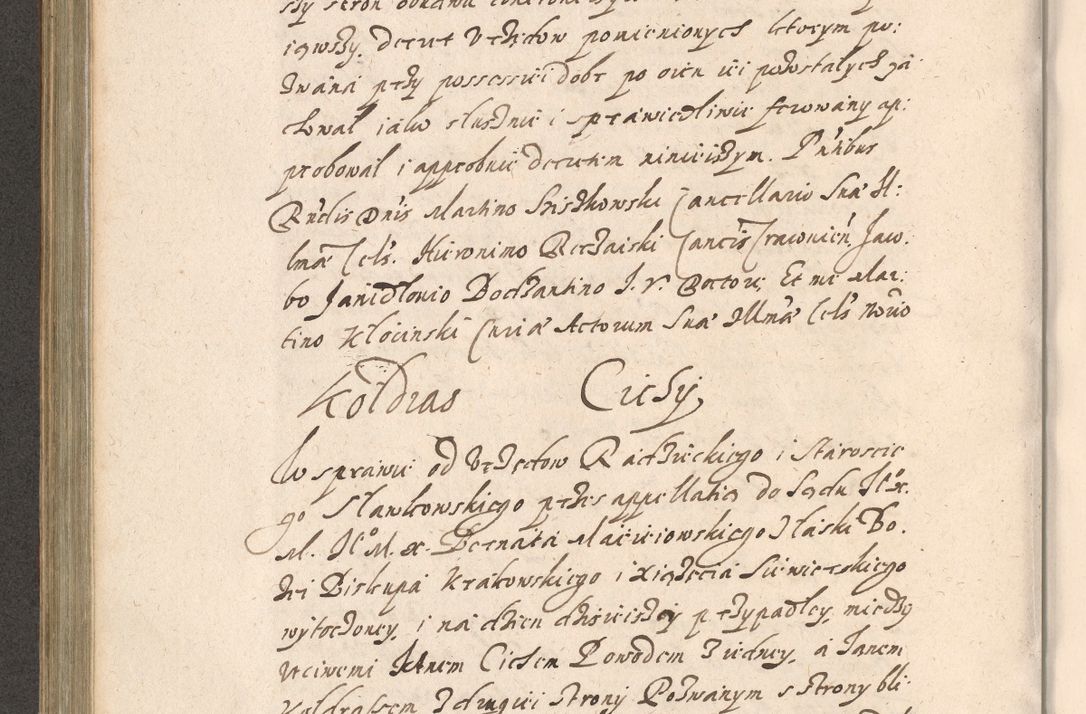 iąwszy, decret Urzędow pomienionych ktorym po:
zwana przy possessiei dobr po oicu iei pozostalych za
chował iako słusznie i sprawiedliwie ferowany ap:
probował i approbuie decretem ninieiszym. Pntibus
Rndis Dnis Martino Sziszkowski Cancellario Suæ Il:
lmæ Cels. Hieronimo Berzaiski Cancris Cracovien. Jaco.
bo Janidlonio Doctorantino J. V. Doctore; Et me Mar:
tino Kłocinski Curiæ Actorum Suæ Illmæ Cels Norio
Kołdras Cichy
W sprawie od Urzędow Radzieckiego i Staroscie
go Sławkowskiego przes appellatią do Sądu Il° x.
M. Il° M. x. Bernata Macieiowskiego z łaski Bo.
zei Biskupa Krakowskiego i Xiążęcia Siewierskiego
wytoczoney, i na dzien dzisieiszy przypadłey, między
Uciwemi Janem Cichem Powodem z iedney, a Janem
Koldrassem z drugiei strony Pozwanym s strony bli